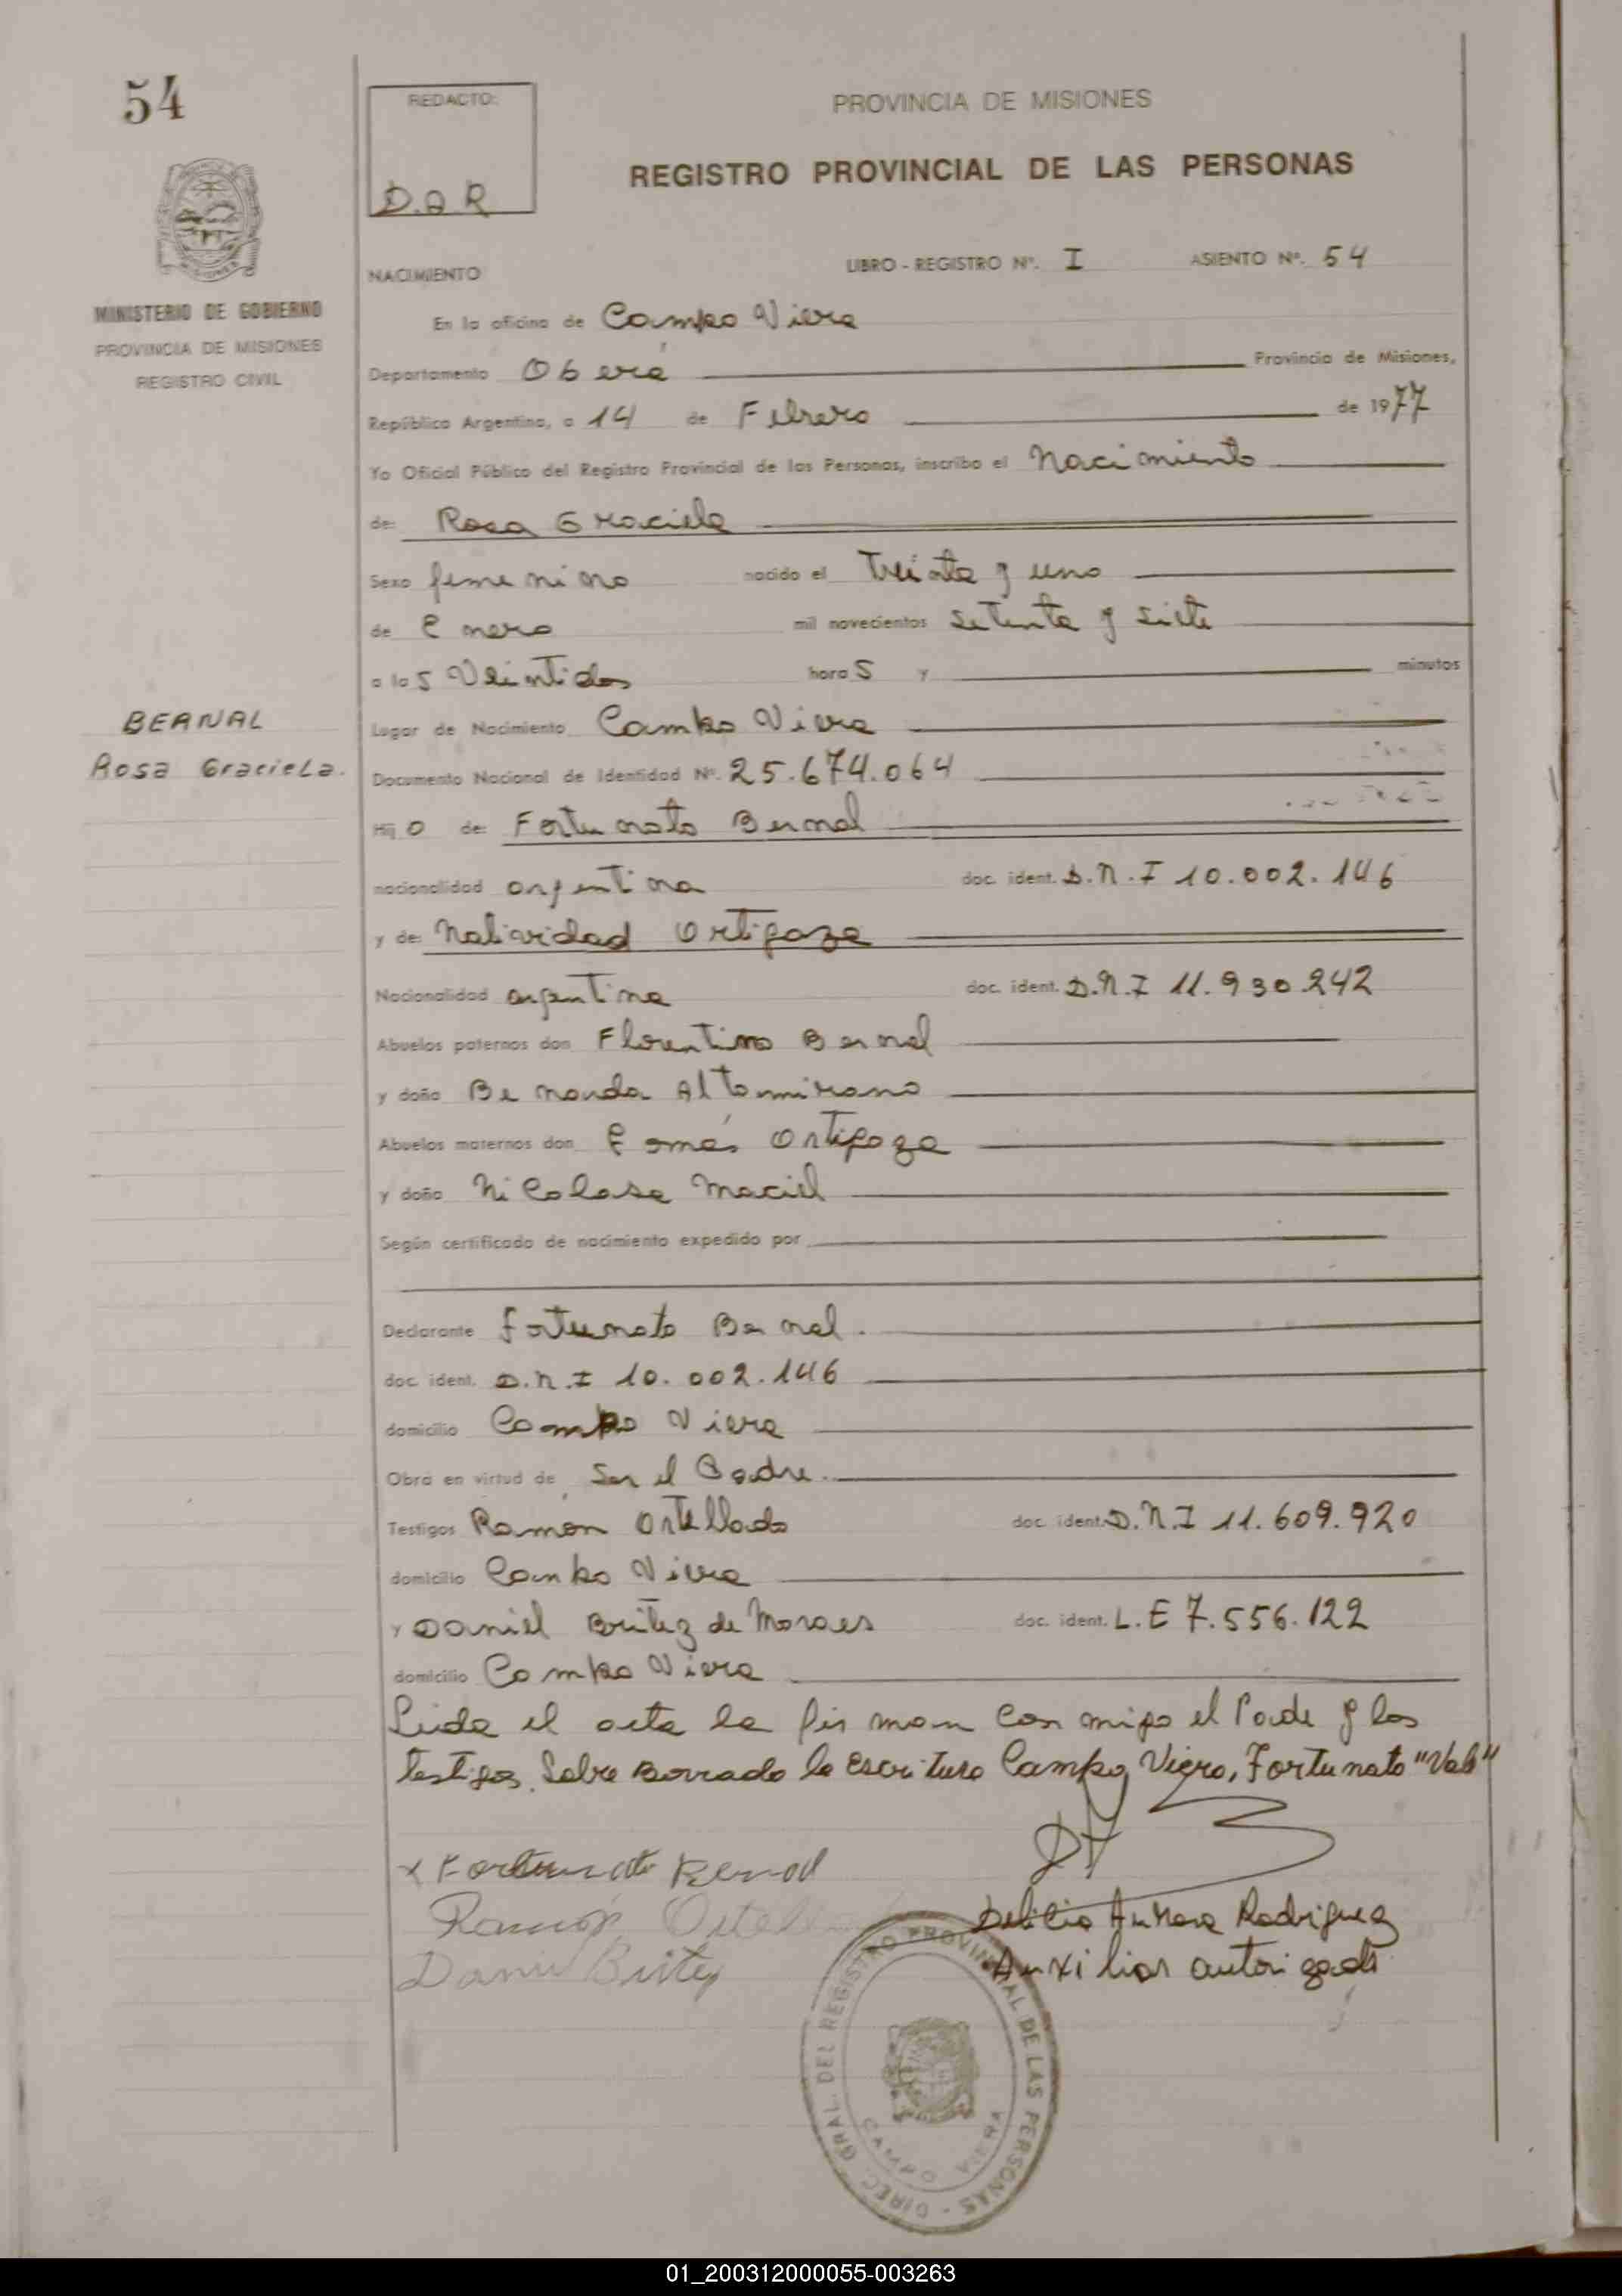 54
REDACTO:
D.A.R
PROVINCIA DE MISIONES
REGISTRO PROVINCIAL DE LAS PERSONAS
MINISTERIO DE GOBIERNO
PROVINCIA DE MISIONES
REGISTRO CIVIL
NACIMIENTO LIBRO - REGISTRO Nº. I ASIENTO Nº. 54
En la oficina de Campo Viera
Departamento Oberá Provincia de Misiones,
República Argentina, a 14 de Febrero de 1977
Yo Oficial Público del Registro Provincial de las Personas, inscribo el Nacimiento
de: Rosa Graciela
Sexo femenino nacido el Treinta y uno
de Enero mil novecientos setenta y siete
a las Veintidos horas y minutos
BERNAL
Rosa Graciela.
Lugar de Nacimiento Campo Viera
Documento Nacional de Identidad Nº. 25.674.064
Hijo de: Fortunato Bernal
nacionalidad argentina doc. ident. D.N.I 10.002.146
y de: Natividad Ortigoza
Nacionalidad argentina doc. ident. D.N.I 11.930.242
Abuelos paternos don Florentino Bernal
y doña Bernarda Altamirano
Abuelos maternos don Tomás Ortigoza
y doña Nicolasa Maciel
Según certificado de nacimiento expedido por
Declarante Fortunato Bernal.
doc. ident. D.N.I 10.002.146
domicilio Campo Viera
Obra en virtud de Ser el Padre.
Testigos Ramón Ortellado doc. ident. D.N.I 11.609.920
domicilio Campo Viera
y Daniel Britez de Moraes doc. ident. L.E 7.556.122
domicilio Campo Viera
Leida el acta la firman con migo el Padre y los
testigos. Sobre Borrado la escritura Campo Viera, Fortunato "Vale"
x Fortunato Bernal
Ramón Ortellado
Daniel Britez
Delicia Aurora Rodriguez
Auxiliar autorizada
DIREC. GRAL. DEL REGISTRO PROVINCIAL DE LAS PERSONAS -
CAMPO VIERA
01_200312000055-003263